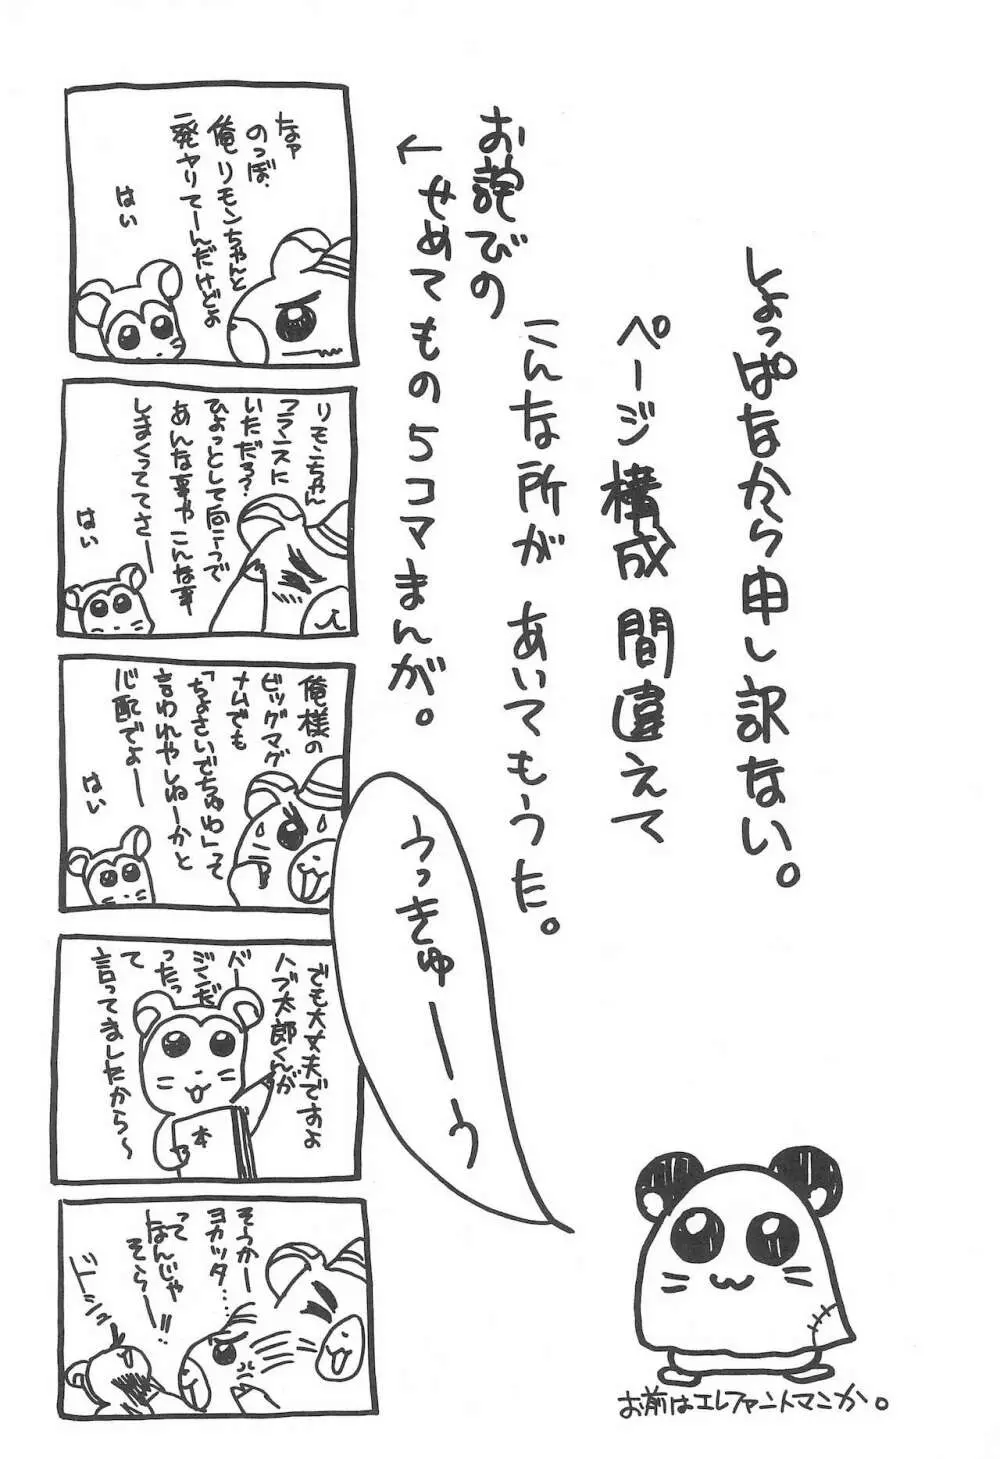 しょっぱなから申し訳ない。
ページ構成間違えて
こんな所があいてもうた。
お詫びの
せめてもの5コマまんが。
←
うっきゅーーう
お前はエレファントマンか。
なァ
のっぽ、
俺リモンちゃんと
一発ヤリてーんだけどよ
はい
リモンちゃん
フランスに
いただろ?
ひょっとして向こうで
あんな事やこんな事
しまくっててさー
はい
俺様の
ビッグマグ
ナムでも
「ちょさいでちゅわ」って
言われやしねーかと
心配でよー
はい
でも大丈夫ですよ
ハブ太郎くんが
バー
ジンだ
ったっ
て
言ってましたから〜
そうかー
ヨカッタ……
って
なんじゃ
そらー!!
ドドシュ
本